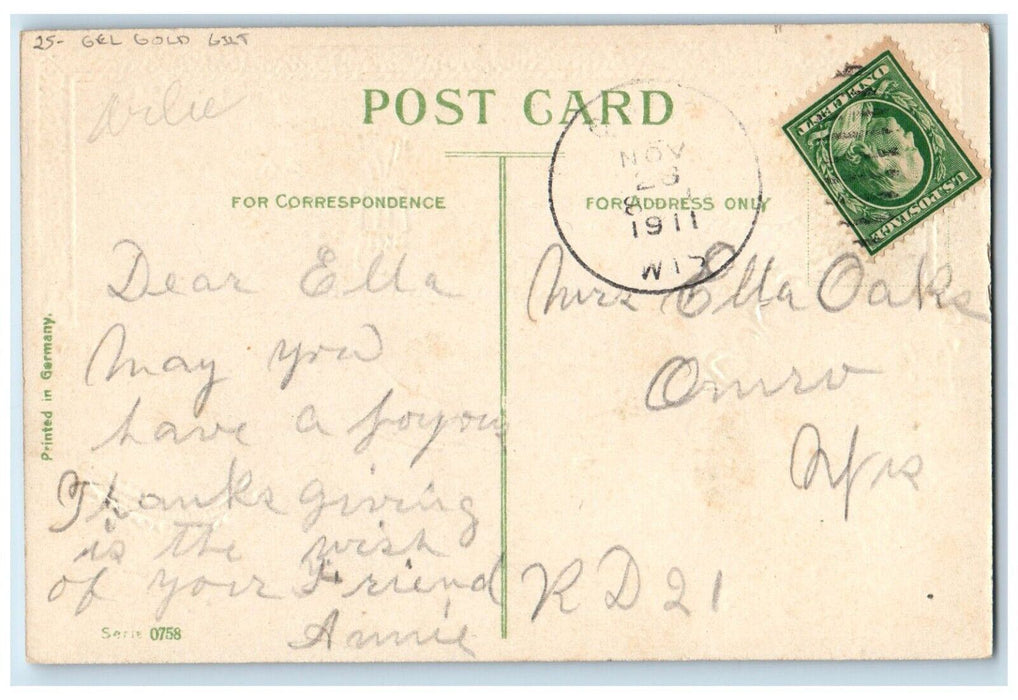 25- GEL GOLD GILT
POST CARD
FOR CORRESPONDENCE
FOR ADDRESS ONLY
NOV
1911
WIS
ONE CENT
U.S. POSTAGE
Printed in Germany.
Dear Ella
May you
have a joyous
Thanksgiving
is the wish
of your Friend
Annie
Serie 0758
Mrs Ella Oaks
Omro
Wis
RD 21